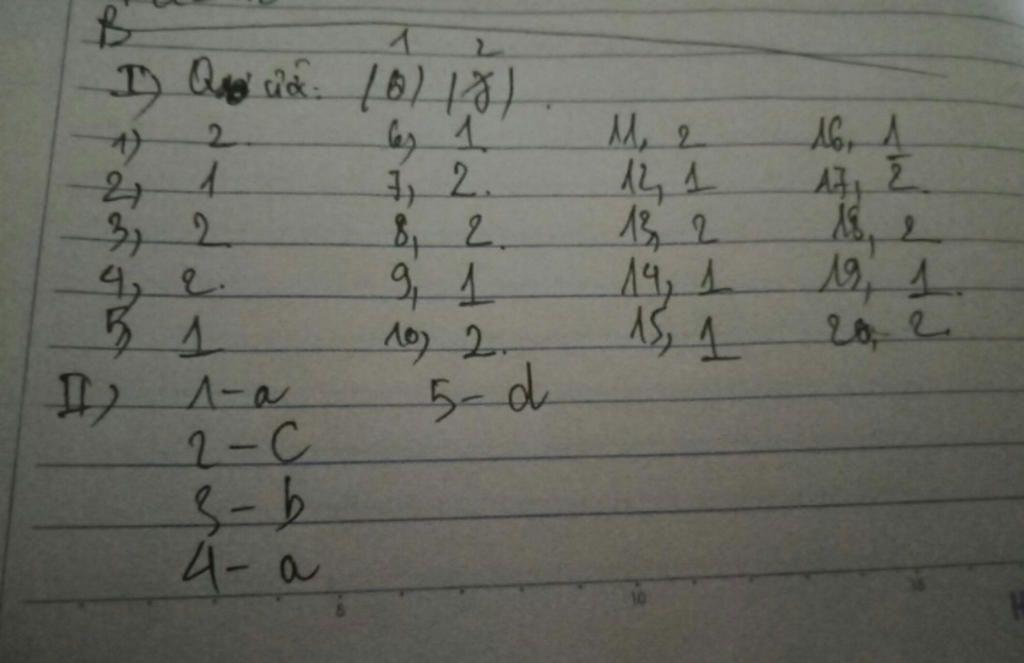 B
1 2
I) Qui ước: /θ/ /ð/.
1) 2 6, 1 11, 2 16, 1
2, 1 7, 2. 12, 1 17, 2.
3, 2 8, 2. 13, 2 18, 2
4, 2. 9, 1 14, 1 19, 1.
5, 1 10, 2. 15, 1 20, 2.
II) 1-a 5-d
2-C
3-b
4-a
5 10 15